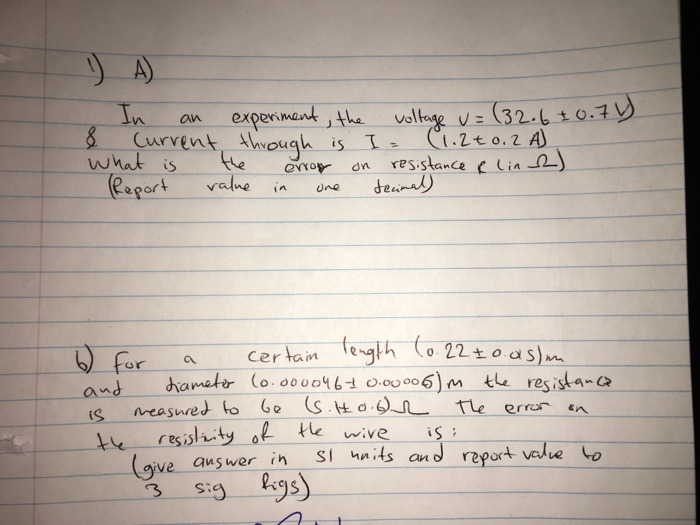 1) A)
In an experiment, the voltage V = (32.6 ± 0.7 V)
& Current through is I = (1.2 ± 0.2 A)
what is the error on resistance R (in Ω)
(Report value in one decimal)
b) For a certain length (0.22 ± 0.015)m
and diameter (0.000046 ± 0.00006)m the resistance
is measured to be (5.1 ± 0.6) Ω The error on
the resistivity of the wire is:
(give answer in SI units and report value to
3 sig figs)